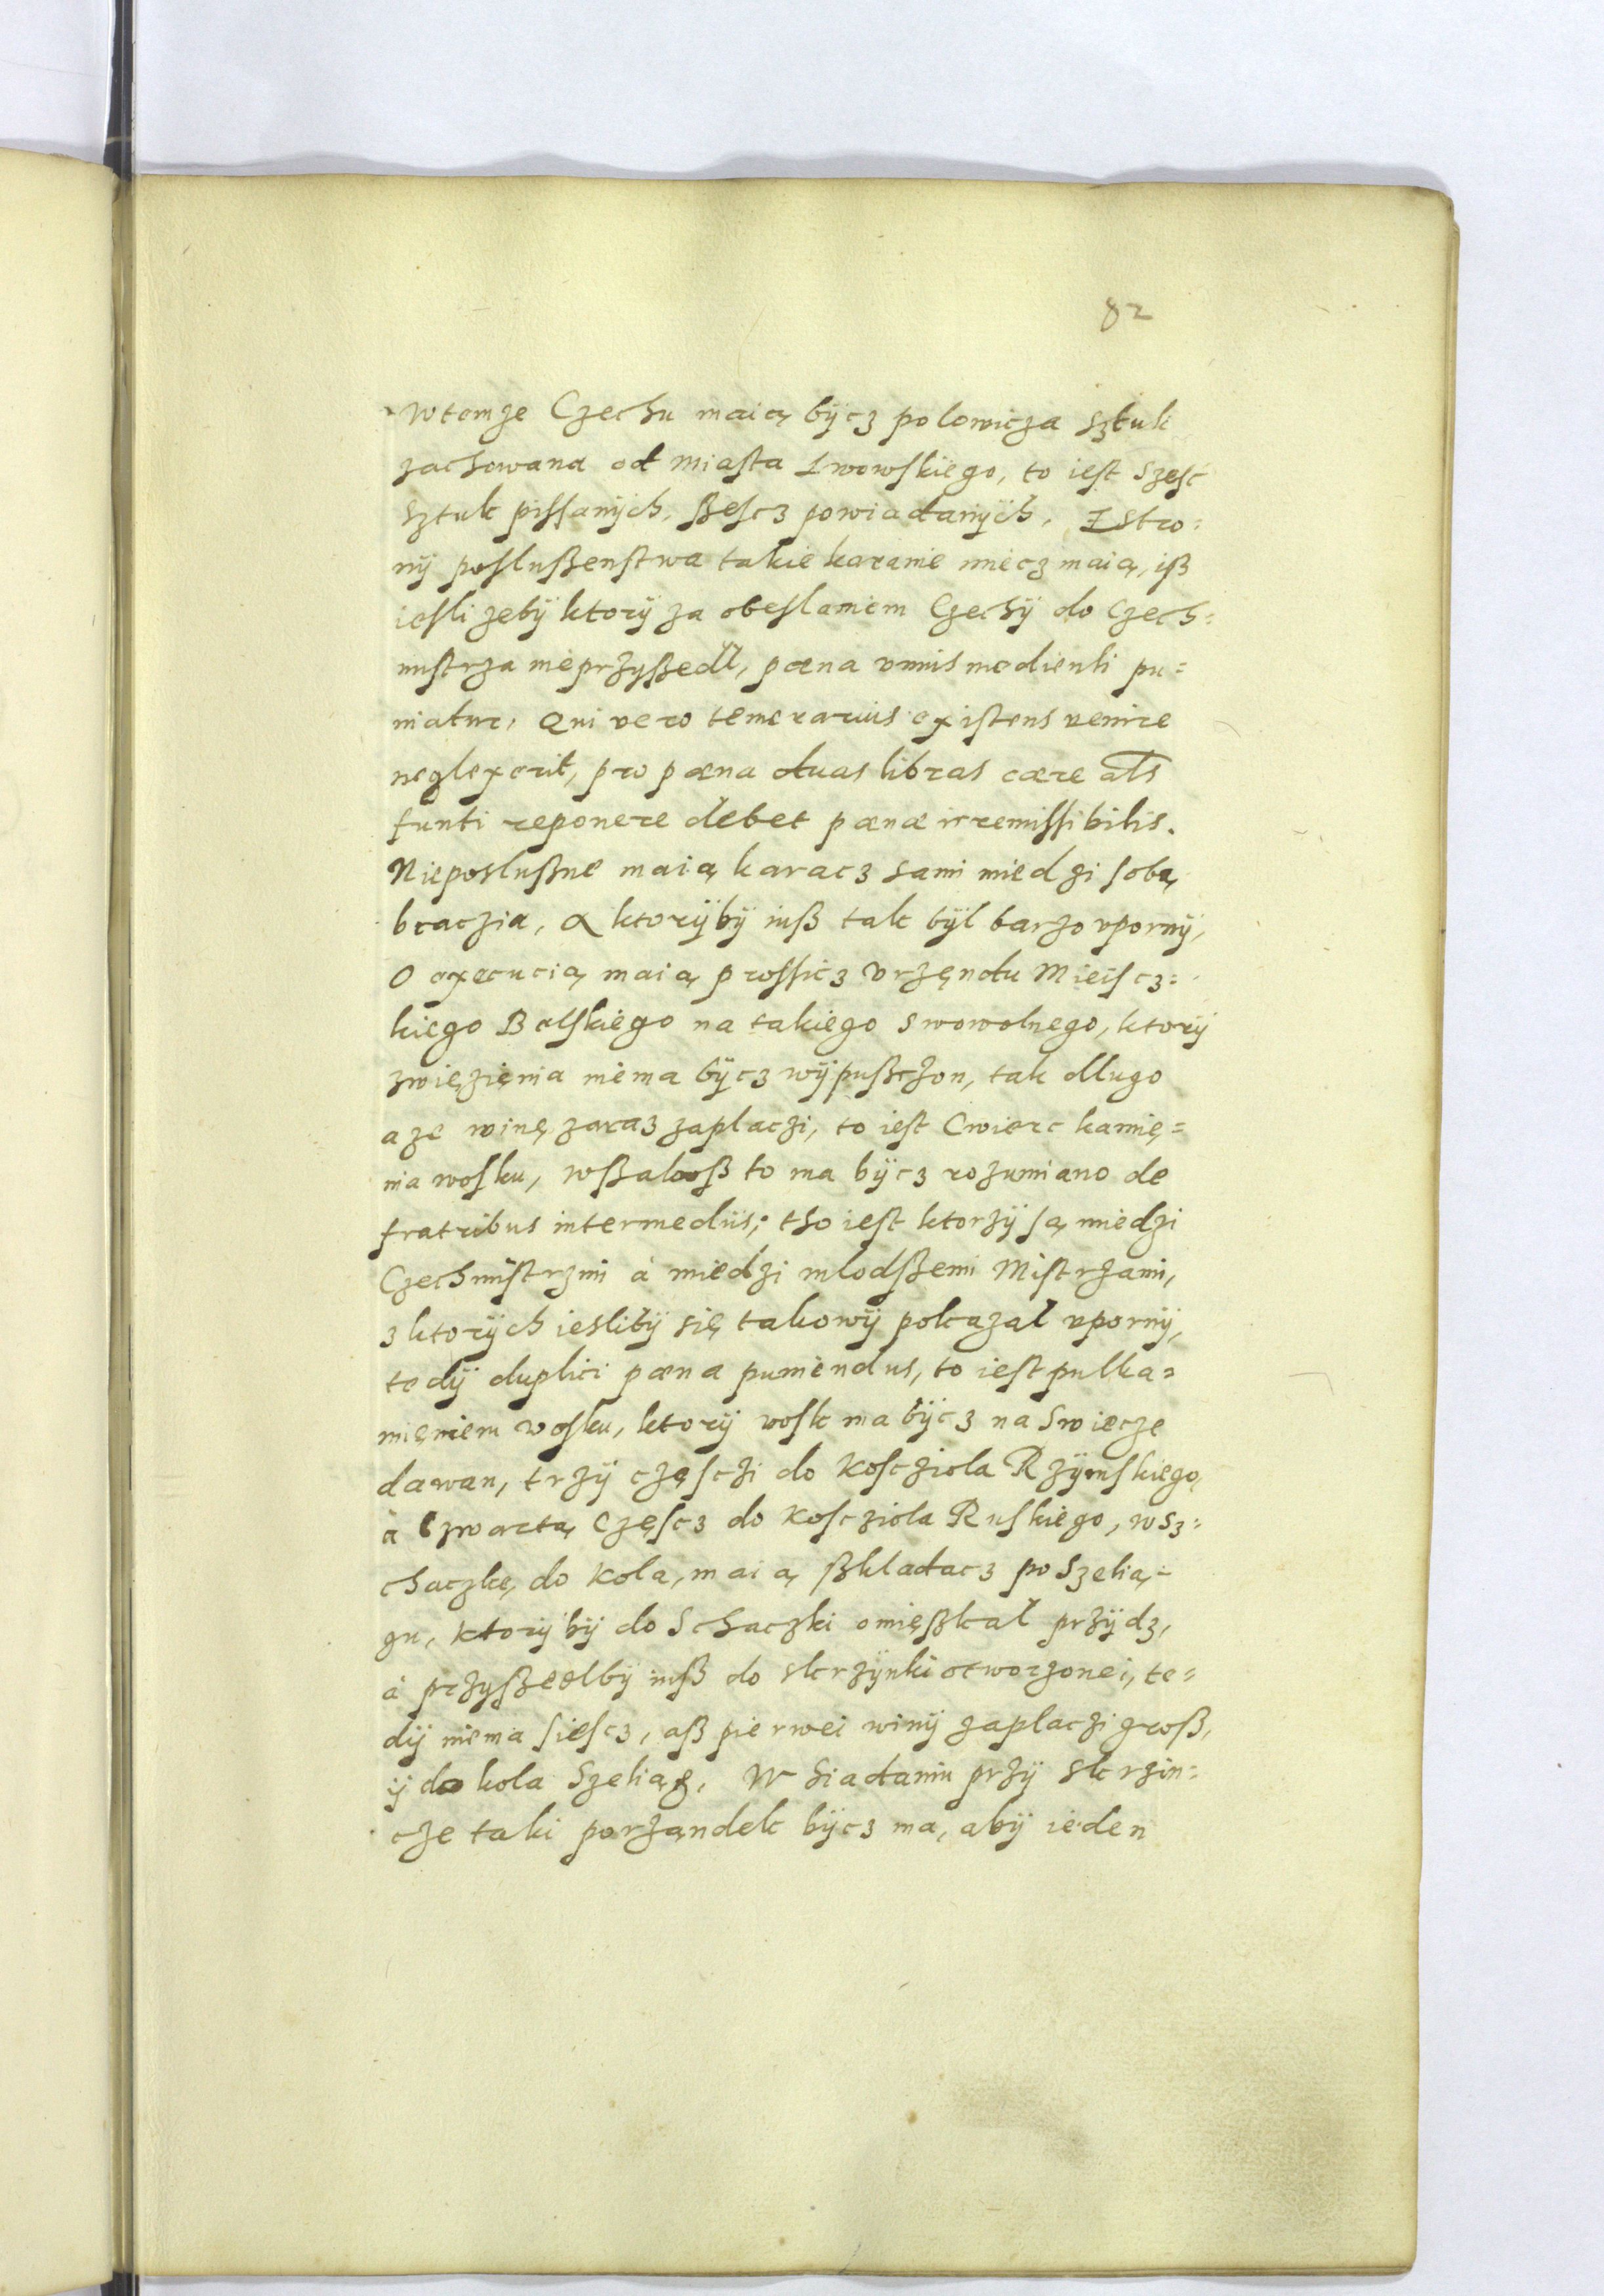 82
wtemze Czechu maią bÿcz polowicza sztuk
zachowana od miasta Lwowskiego, to iest szesc
sztuk pissanÿch, sßescz powiadanÿch, Zstro=
nÿ poslußenstwa takie karanie miecz maią, iß
iesli zebÿ ktorÿ za obeslaniem Czechÿ do Czech=
mistrza nieprzyßedł, pœna vnius mediensi pu=
niatur, Qui vero temerarius existens venire
neglexerit, pro pœna duas libras cœre als
funti reponere debet pœnæ irremissibilis.
Nieposlußne maią karacz sami miedzi sobą
braczia, A ktorÿbÿ iuß tak bÿl barzo vpornÿ,
O execucią maią prossicz vrzęndu Mieiscz=
kiego Belskiego na takiego swowolnego, ktorÿ
zwięzięnia niema bÿcz wÿpußczon, tak dlugo
aze winę zaraz zaplaczi, to iest Cwierc kamię=
nia wosku, wßakoß to ma bÿcz rozumiano de
fratribus intermediis; tho iest ktorzÿ są miedzi
Czechmistrzmi à miedzi mlodßemi Mistrzami,
z ktorÿch ieslibÿ się takowÿ pokazał vpornÿ,
tedÿ duplici pœna puniendus, to iest pulka=
mięniem wosku, ktorÿ wosk ma bÿcz na swiecze
dawan, trzÿ częsczi do Kosczioła Rzÿmskiego,
à Czwartą Częscz do Kosczioła Ruskiego, wsz=
chaczkę do Kola, maią ßkladacz po Szelią=
gu, ktorÿbÿ do Schaczki omięßkał przÿdz,
à przyßedlbÿ iuß do skrzÿnki otworzonei, te=
dÿ niema siescz, aß pierwei winÿ zaplaczi groß,
ÿ do kola Szeliąg, W siadaniu przÿ skrzin=
cze taki porządek bÿcz ma, abÿ ieden